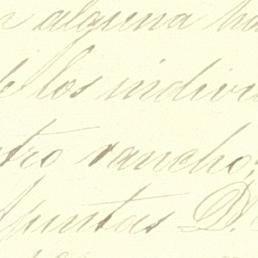 n alguna ha
e los indivi
tro rancho;
Apuntas D.